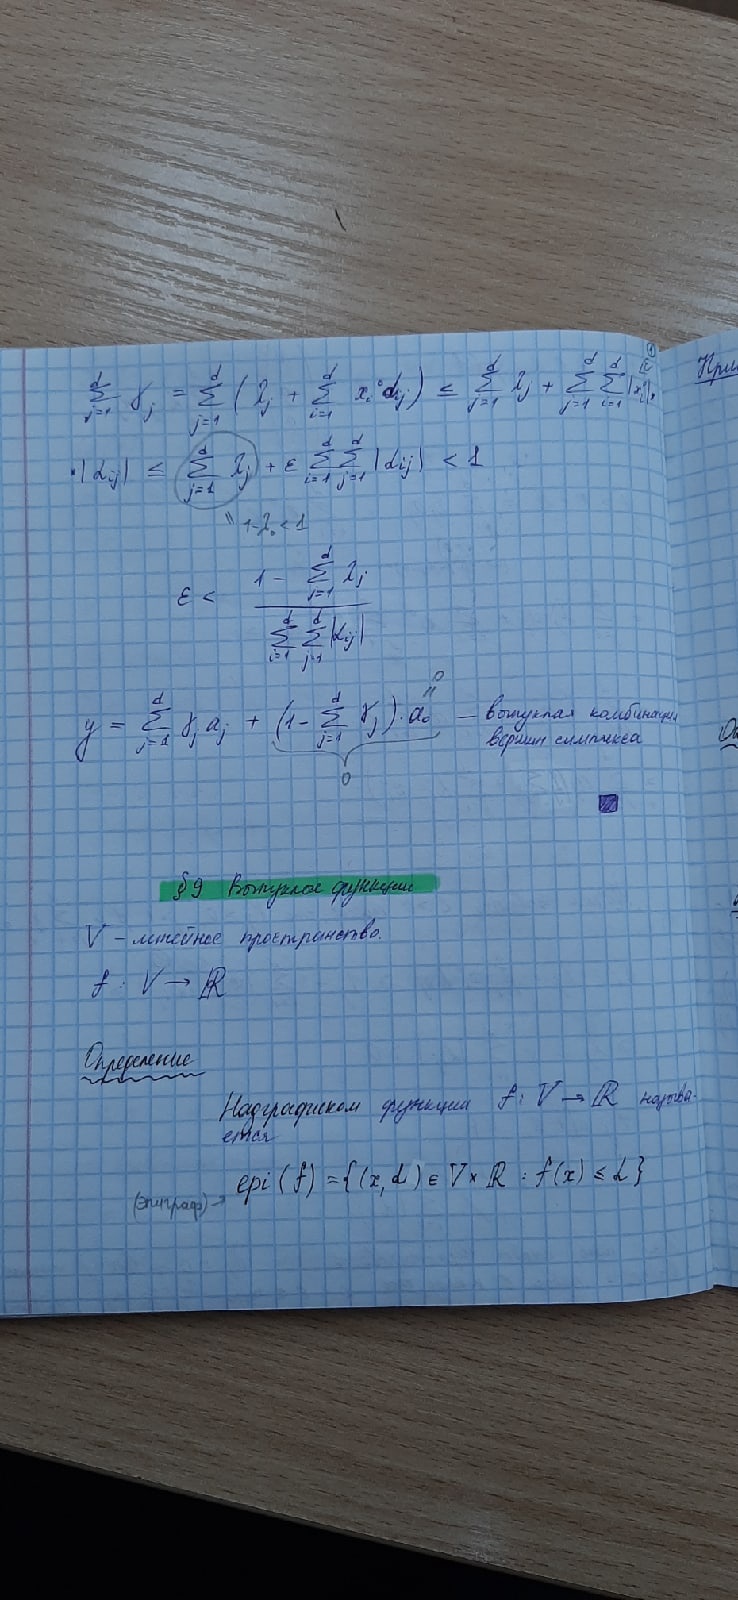 ∑_{j=1}^{d} γ_j = ∑_{j=1}^{d} ( λ_j + ∑_{i=1}^{d} x_i α_{ij} ) ≤ ∑_{j=1}^{d} λ_j + ∑_{j=1}^{d} ∑_{i=1}^{d} |x_i| ·
· |α_{ij}| ≤ ∑_{j=1}^{d} λ_j + ε ∑_{i=1}^{d} ∑_{j=1}^{d} |α_{ij}| < 1
" 1-λ_0 < 1
ε < (1 - ∑_{j=1}^{d} λ_j) / (∑_{i=1}^{d} ∑_{j=1}^{d} |α_{ij}|)
0
"
y = ∑_{j=1}^{d} γ_j a_j + (1 - ∑_{j=1}^{d} γ_j) · a_0 — выпуклая комбинация
вершин симплекса
0
§ 9 Выпуклые функции
V – линейное пространство.
f : V → ℝ
Определение
Надграфиком функции f : V → ℝ называ-
ется
epi (f) = {(x, α) ∈ V × ℝ : f(x) ≤ α}
(эпиграф) →